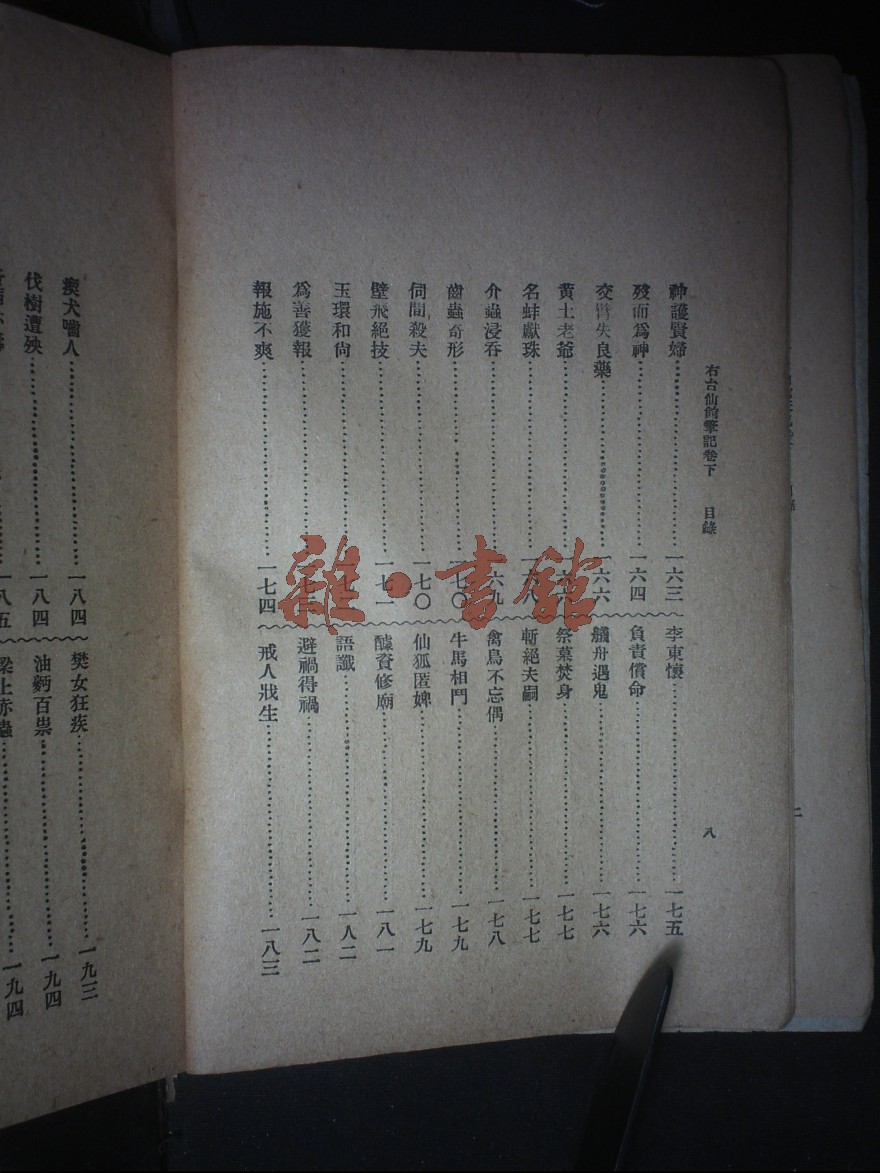 右台仙館筆記卷下 目錄
八
神護賢婦 一六三
歿而為神 一六四
交臂失良藥 一六六
黃土老爺 一六六
名蚌獻珠 一六八
介蟲浸吞 一六九
齒蟲奇形 一七〇
伺間殺夫 一七〇
壁飛絕技 一七一
玉環和尙
為善獲報
報施不爽 一七四
李東懷 一七五
負責償命 一七六
艤舟遇鬼 一七六
祭墓焚身 一七七
斬絕夫嗣 一七七
禽鳥不忘偶 一七八
牛馬相鬥 一七九
仙狐匿婢 一七九
醵資修廟 一八一
語讖 一八二
避禍得禍 一八二
戒人戕生 一八三
瘈犬嚙人 一八四
伐樹遭殃 一八四
一八五
樊女狂疾 一九三
油麪百祟 一九四
梁上赤蟲 一九四
雜·書館